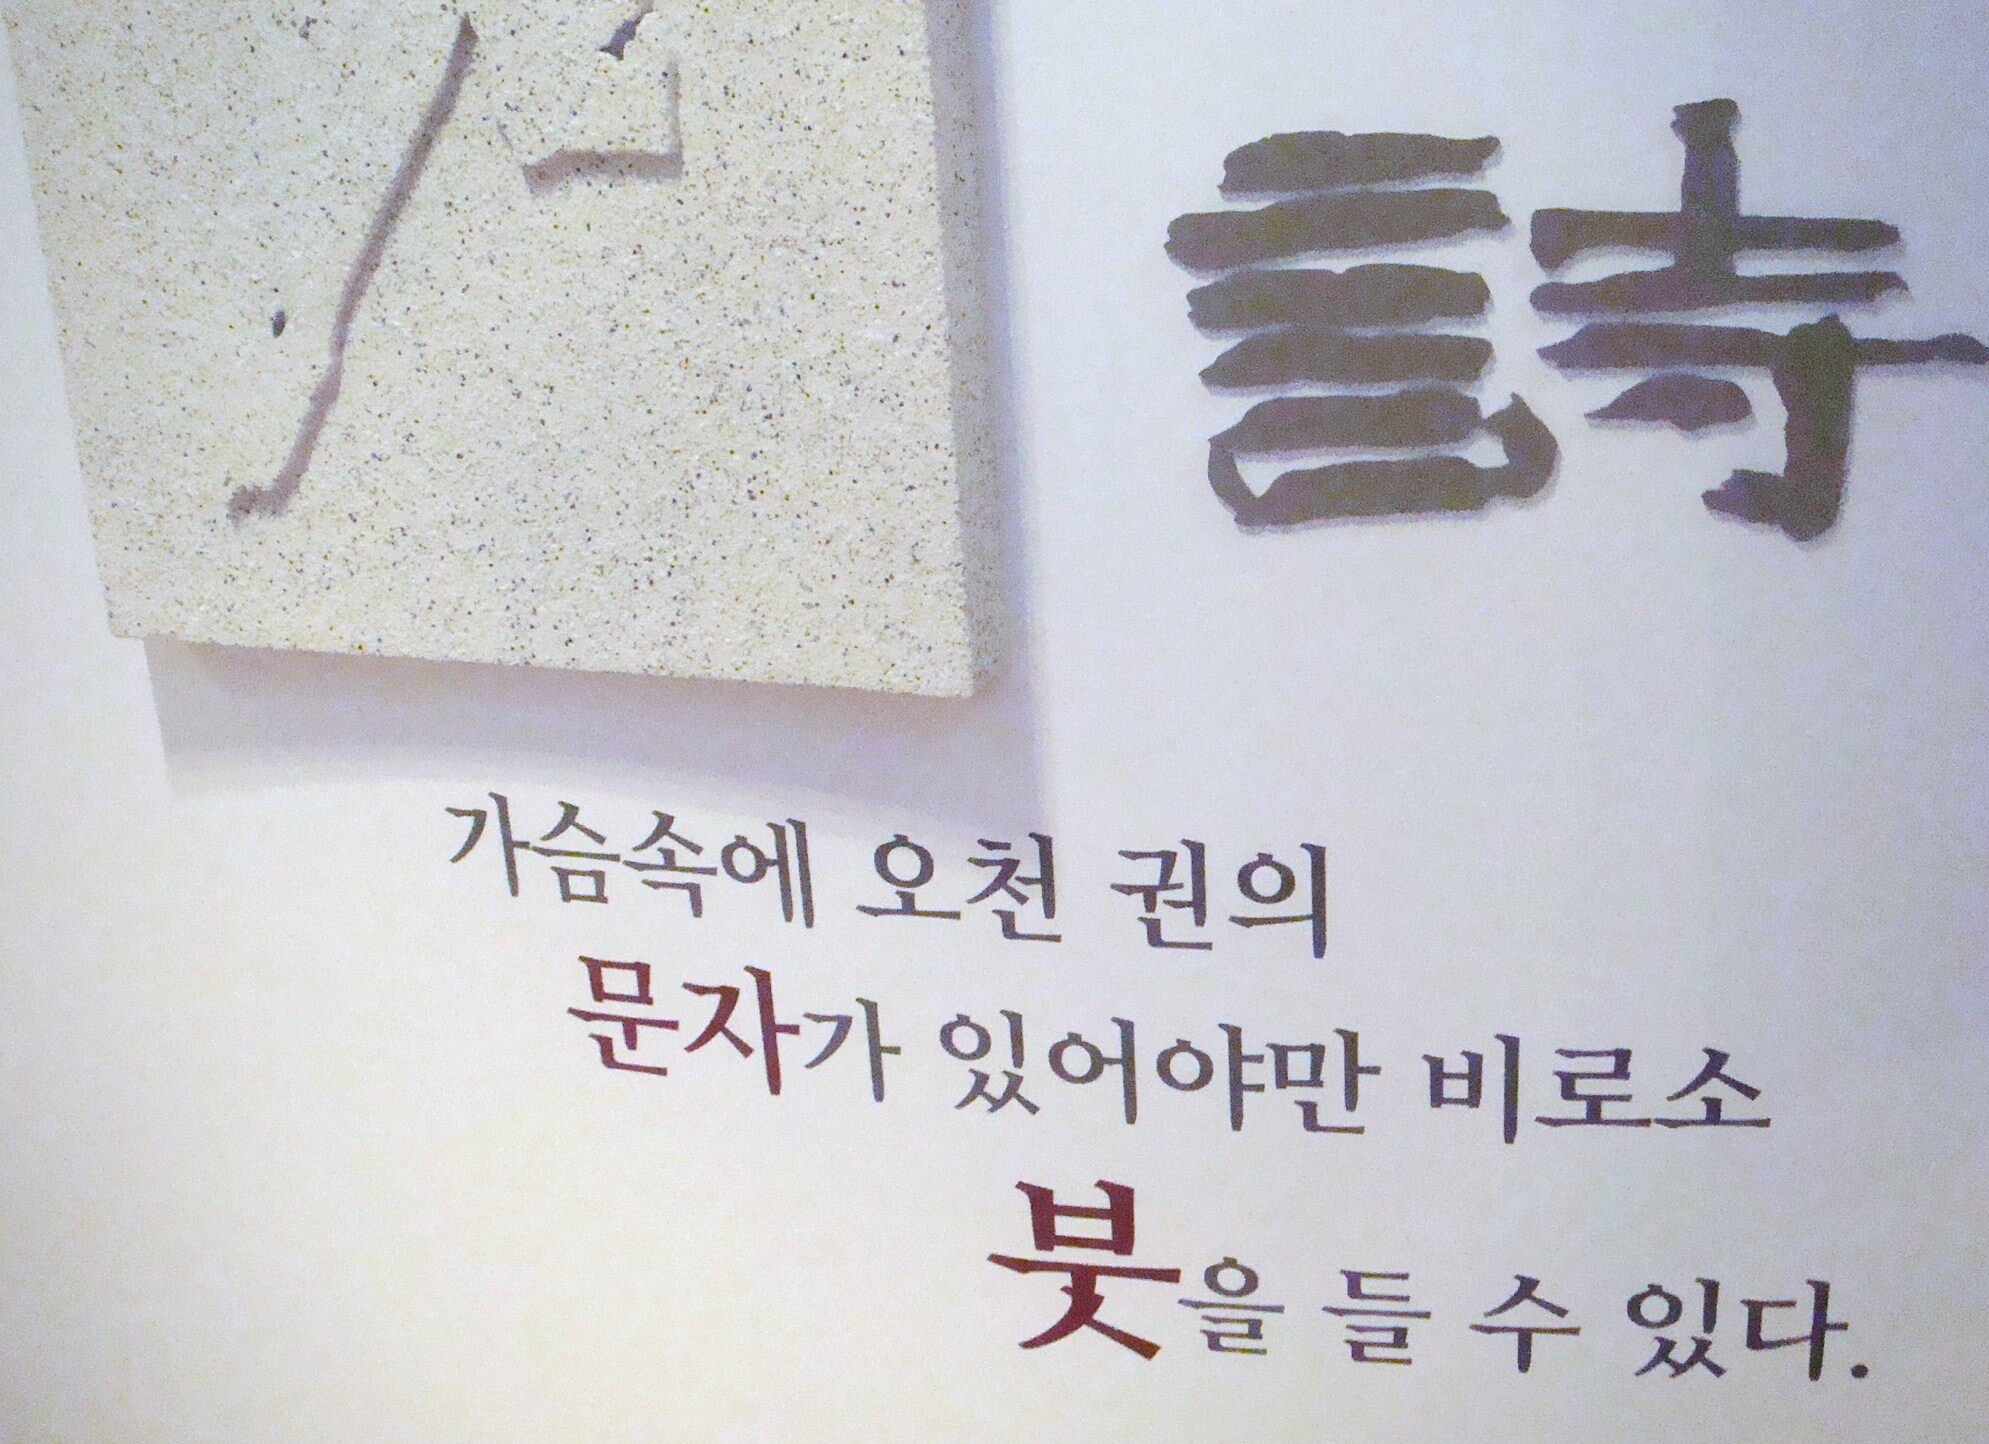 詩
가슴속에 오천 권의
문자가 있어야만 비로소
붓을 들 수 있다.